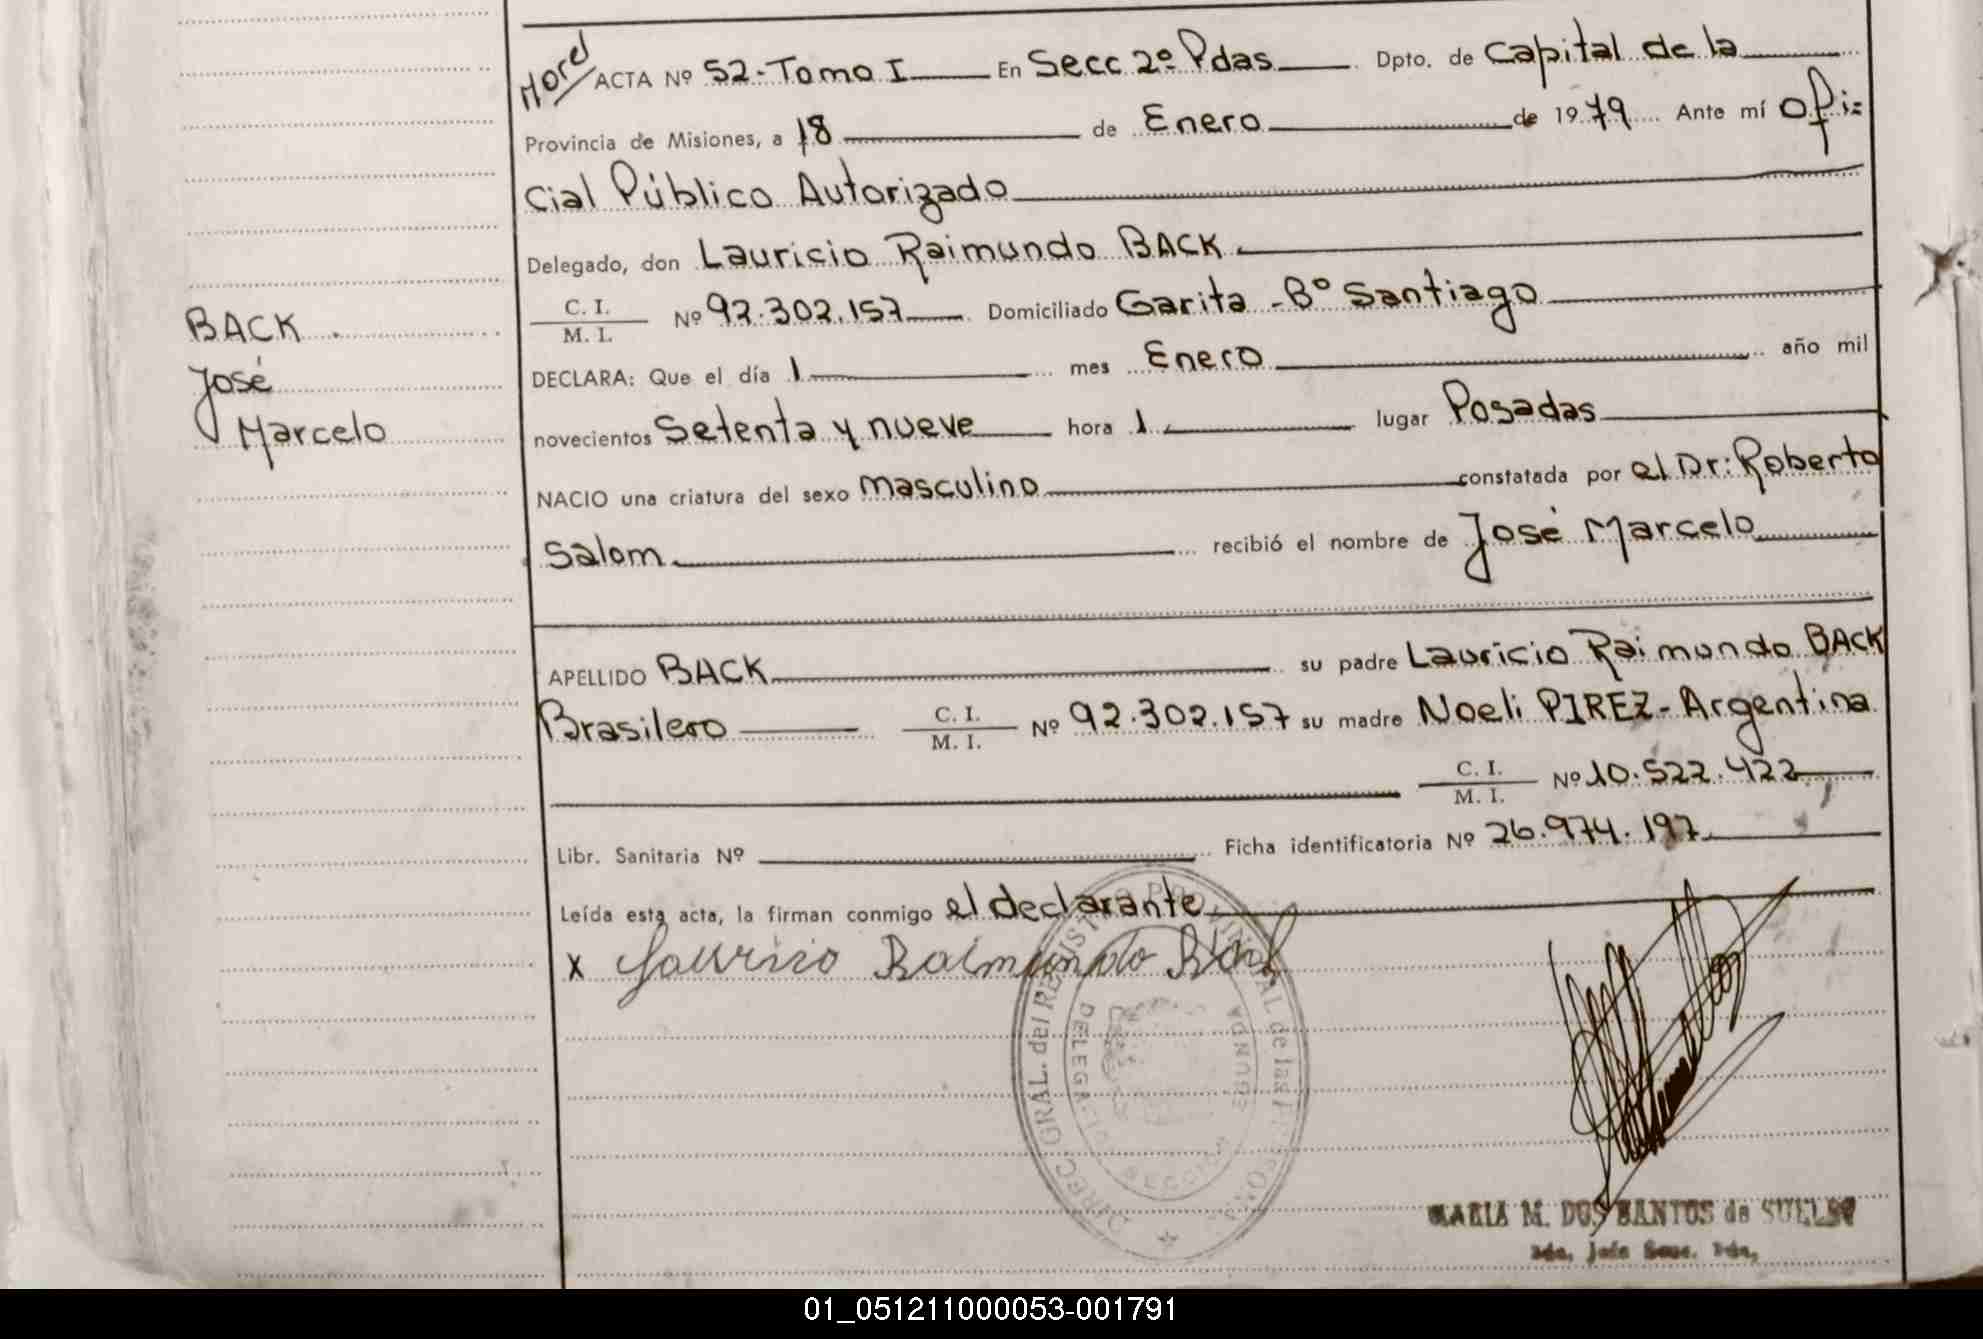 ACTA Nº 52-Tomo I En Secc 2º Pdas Dpto. de Capital de la
Provincia de Misiones, a 18 de Enero de 1979 Ante mí Ofi=
cial Público Autorizado
Delegado, don Lauricio Raimundo BACK
C. I.
M. I. Nº 92.302.157 Domiciliado Garita - Bº Santiago
BACK
José
Marcelo
DECLARA: Que el día 1 mes Enero año mil
novecientos Setenta y nueve hora 1 lugar Posadas
NACIO una criatura del sexo masculino constatada por el Dr: Roberto
Salom recibió el nombre de José Marcelo
APELLIDO BACK su padre Lauricio Raimundo BACK
Brasilero C. I.
M. I. Nº 92.302.157 su madre Noeli PIREZ - Argentina
C. I.
M. I. Nº 10.522.422
Libr. Sanitaria Nº Ficha identificatoria Nº 26.974.197
Leída esta acta, la firman conmigo el declarante
x Lauricio Raimundo Back
DIREC. GRAL. del REGISTRO PROVINCIAL de las PERSONAS
DELEGACION
SECCION SEGUNDA
MARIA M. DOS SANTOS de
01_051211000053-001791